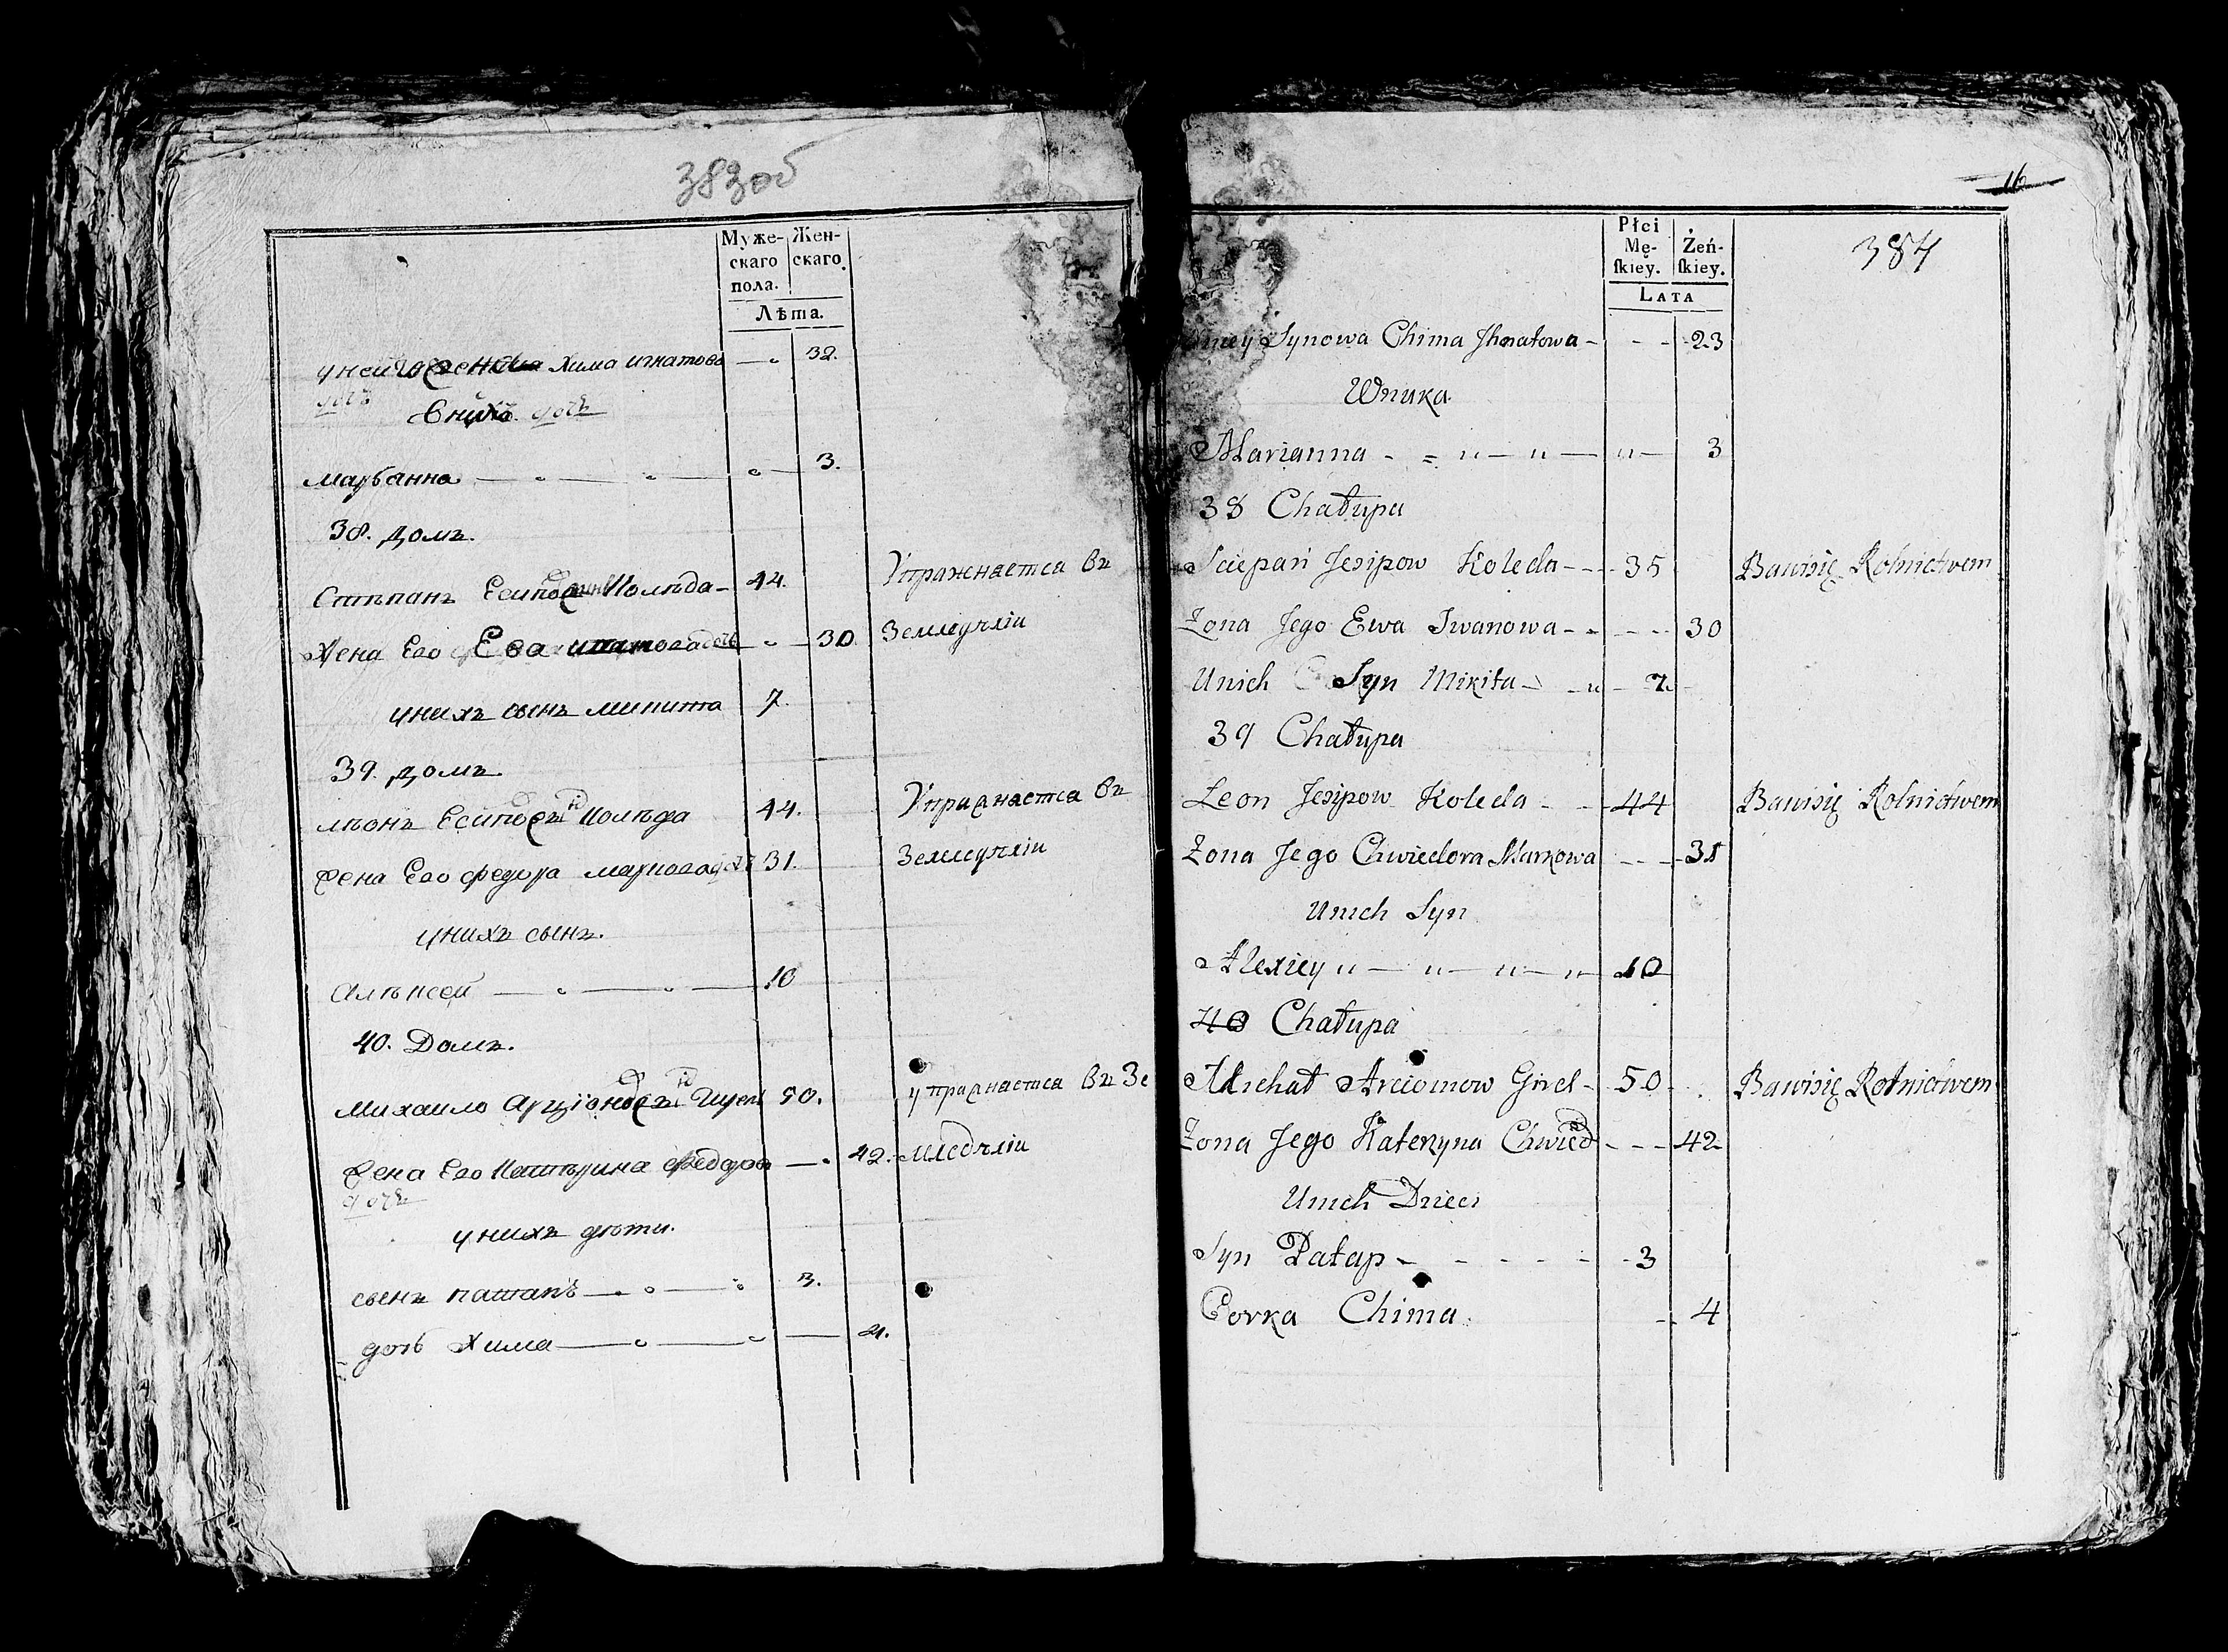 383об
Муже- Жен-
скаго скаго.
пола.
Лѣта.
уней Хима игнатова — 32.
дочь
Внука дочь
марьанна — 3.
38. Домъ.
Степанъ Есиповъ Колѣда — 44. Упражнается Въ
Жена Его Ева дочь — 30. Земледѣліи
унихъ сынъ микита 7.
39. домъ.
лѣонъ Есиповъ Колѣда 44. Упражнается Въ
Жена Его федора маркова дочь 31. Земледѣліи
унихъ сынъ.
Алѣксей — 10
40. Домъ.
Михаило Арціоновъ Гирел 50. упражнается Въ Зе
Жена Его Катѣрина федорова — 42. мледѣліи
дочь
унихъ дѣти.
сынъ патапъ — 3.
дочь Хима — 4.
16
Płci
Mę- Żeń-
ſkiey. ſkiey.
Lata
384
Synowa Chima Jhnatowa - - - 23
Wnuka
Marianna - = " — " — " — 3
38 Chałupa
Sciepan Jesipow Koleda - - - 35 Bawisię Rolnictwem
Zona Jego Ewa Iwanowa - - - - - 30
Unich Syn Mikita - - " - 7
39 Chałupa
Leon Jesipow Koleda - - - 44 Bawisię Rolnictwem
Zona Jego Chwiedora Markowa - - - 31
Unich Syn
Alexiey " — " — " — " — 10
40 Chałupa
Michał Arciomow Girel - 50 Bawisię Rolnictwem
Zona Jego Katerzyna Chwied - - - 42
Unich Dzieci
Syn Patap - - - - - - 3
Corka Chima - - 4